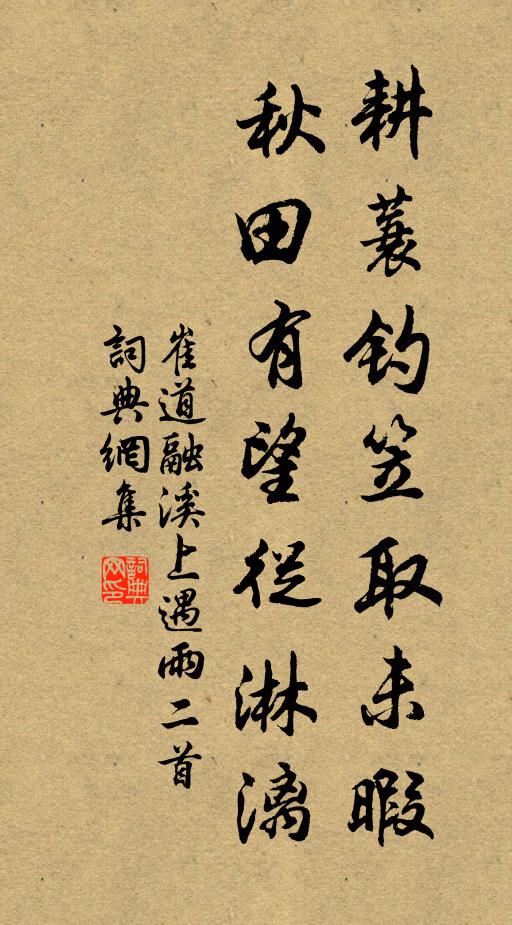 耕蓑釣笠取未暇
秋田有望從淋漓
崔道融溪上遇雨二首
詞典網集
詞典網印